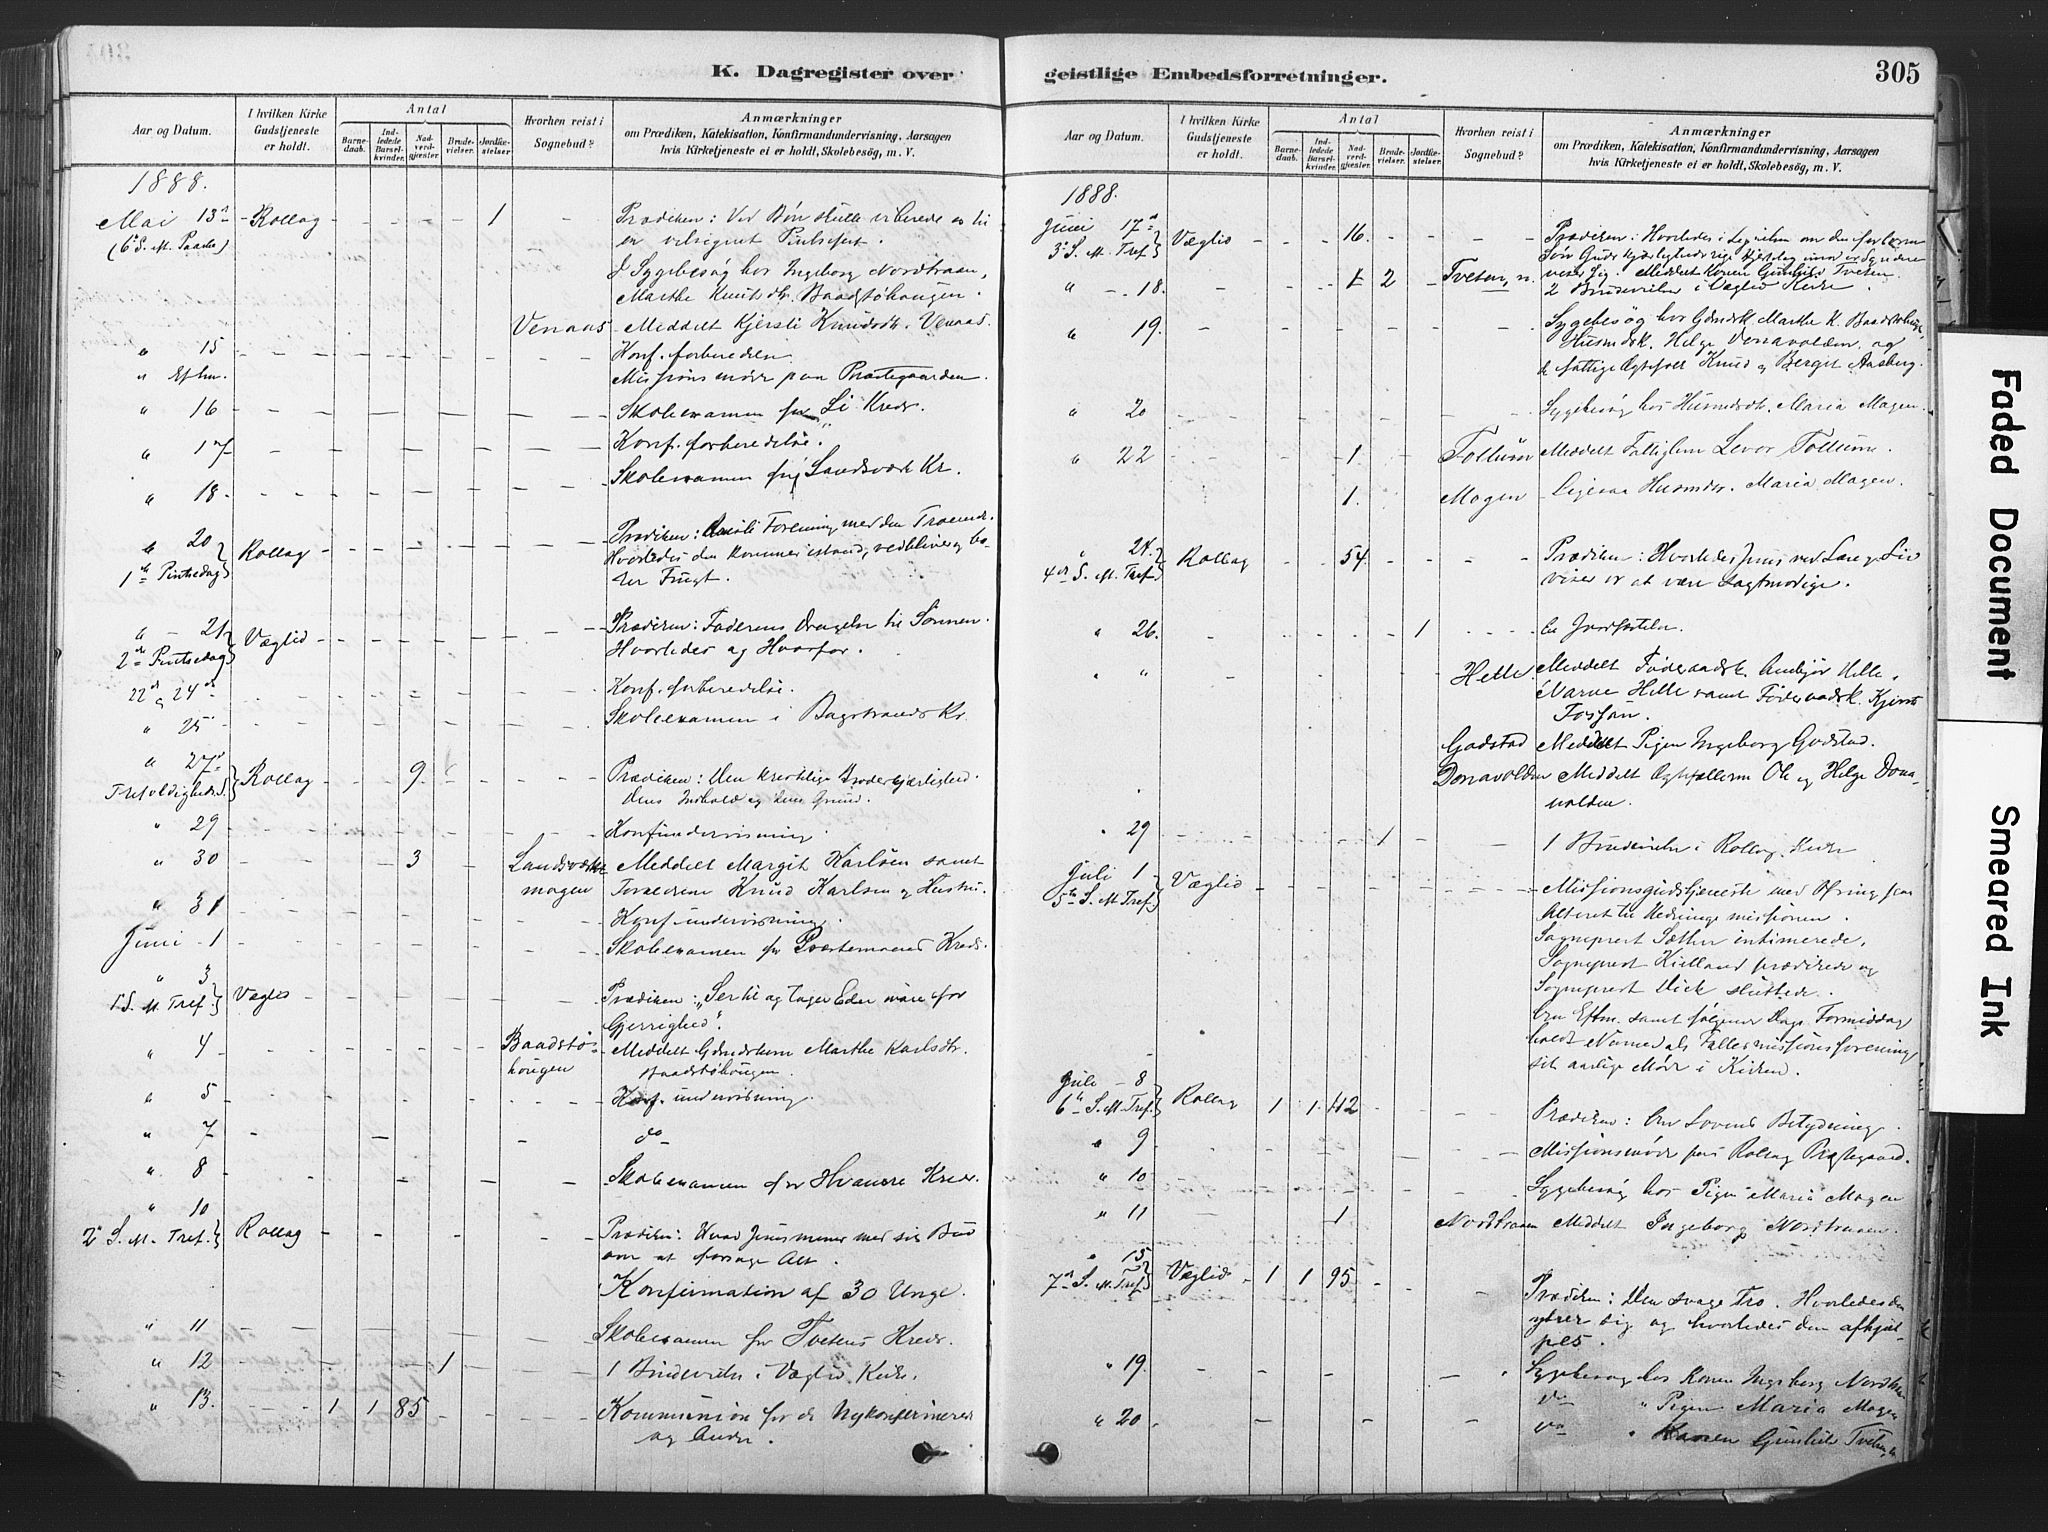 K. Dagregister over
Aar og Datum.
I hvilken Kirke Gudstjeneste er holdt.
Antal
Barnedaab.
Indledede Barselkvinder.
Nadverdgjester
Brudevielser.
Jordfæstelser
Hvorhen reist i Sognebud?
Anmærkninger
om Prædiken, Katekisation, Konfirmandundervisning, Aarsagen
hvis Kirketjeneste ei er holdt, Skolebesøg, m. V.
1888.
Mai 13de Rollag - - - - 1 - Prædiken: Ved Bøn skulle vi berede os til
(6te S. e. Paaske) en velsignet Pintsefest.
Sygebesøg hos Ingeborg Nordtraaen,
Marthe Knutsdtr. Baadstøhaugen.
Venaas Meddelt Kjersti Knudsdtr. Venaas.
" 15 Konf. forberedelse.
" Efterm. Missionsmøde paa Præstegaarden.
" 16 Skoleexamen for Li Kreds.
" 17 Konf. forberedelse.
Skoleexamen for Landsverk Kr.
" 18
" 20 Rollag Prædiken: Forening med den Troende.
1ste Pintsedag Hvorledes den kommer istand, vedbliver og bærer Frugt.
" 21 Væglid Prædiken: Faderens Dragelse til Sønnen.
2den Pintsedag Hvorledes og Hvorfor.
22de og 24de Konf. forberedelse.
" 25 Skoleexamen i Bagstrands Kr.
" 27de Rollag 9 Prædiken: Den kristelige Broderkjærlighed.
Trefoldigheds S. dens Indhold og dens Grund.
" 29 Konfundervisning.
" 30 3 Landsværkmogen Meddelt Margit Karlsen samt
Forældrene Knud Karlsen og Hustru.
" 31 Konf. undervisning.
Juni 1 Skoleexamen for Præstemoens Kreds.
" 3 Væglid Prædiken: "Ser til og tager Eder vare for
1 S. e. Tref. Gjerrighed".
" 4 Baadstøhougen Meddelt Gdmdskone Marthe Karlsdtr.
Baadstøhougen.
" 5 Konf. undervisning.
" 7 do
" 8 Skoleexamen for Hvaasre Kreds.
" 10 Rollag Prædiken: Hvad Jesus mener med sit Bud
2 S. e. Tref. om at forsage Alt.
Konfirmation af 30 Unge.
" 11 Skoleexamen for Tvetens Kreds.
" 12 1 1 Brudevielse i Væglid Kirke.
" 13. 1 1 85 Kommunion for de Nykonfirmerede
og Andre.
geistlige Embedsforretninger.
305
Aar og Datum.
I hvilken Kirke Gudstjeneste er holdt.
Antal
Barnedaab.
Indledede Barselkvinder.
Nadverdgjester
Brudevielser.
Jordfæstelser.
Hvorhen reist i Sognebud?
Anmærkninger
om Prædiken, Katekisation, Konfirmandundervisning, Aarsagen
hvis Kirketjeneste ei er holdt, Skolebesøg, m. V.
1888.
Juni 17de Væglid 16. Prædiken: Hvorledes i Lignelsen om den fortabte
3 S. e. Tref. Søn Guds kjærlighedsrige Hjertelag imod os Syndere
viser sig. Meddelt Konen Gunhild Tveten
" 18. 1 2 Tveten, n. 2 Brudevielser i Væglid Kirke.
" 19. Sygebesøg hos Gdmdsk. Marthe K. Baadstøhaug,
Husmdsk. Helge Donavolden og
de fattige Ægtefolk Knud og Bergit Aasberg.
" 20 Sygebesøg hos Husmdsdt. Maria Mogen.
" 22 1. Tollum Meddelt Fattiglem Levor Tollum.
1. Mogen Ligesaa Husmdsdt. Maria Mogen.
" 24. Rollag 54 Prædiken: Hvorledes Jesus ved Lære og Liv
4de S. e. Tref. viser os at være sagtmodige.
" 26. 1 En Jordfæstelse.
" " Helle. Meddelt Føderaadsk. Ambjør Helle,
Narve Helle samt Føderaadsk. Kjersti
Fossan.
Godstad Meddelt Pigen Ingeborg Godstad.
Donavolden Meddelt Ægtefællerne Ole og Helge Donavolden.
" 29 1 1 Brudevielse i Rollag Kirke
Juli 1 Væglid Missionsgudstjeneste med Ofring paa
5te S. e. Tref. Alteret til Hedningemissionen.
Sogneprest Sæther intimerede,
Sogneprest Kielland prædikede og
Sogneprest Dick sluttede.
Om Efterm. samt følgende Dags Formiddag
holdt Numedals Fællesmissionsforening
sit aarlige Møde i Kirken.
Juli 8 Rollag 1 1. 42 Prædiken: Om Lovens Betydning.
6te S. e. Tref.
" 9 Missionsmøde paa Rollag Præstegaard.
" 10 Sygebesøg hos Pigen Maria Mogen
" 11 1 Nordtraaen Meddelt Ingeborg Nordtraaen.
" 15 Væglid 1 1 95 Prædiken: Den svage Tro. Hvorledes den
7de S. e. Tref. ytrer sig og hvorledes den afhjælpes.
" 19. Sygebesøg hos Konen Ingeborg Nordtraaen
do " Pigen Maria Mogen
" 20 do " Konen Gunhild Tveten, n.
Faded Document
Smeared Ink